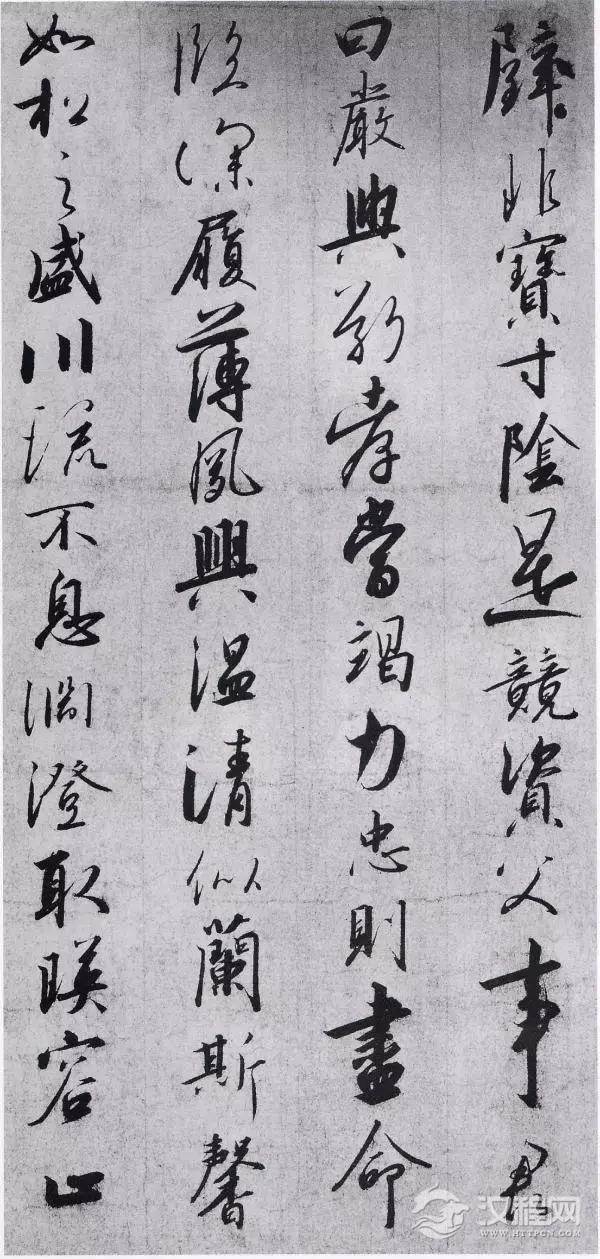 璧非寶寸陰是競資父事君
曰嚴與敬孝當竭力忠則盡命
臨深履薄夙興溫清似蘭斯馨
如松之盛川流不息淵澄取暎容止
汉程网
WWW.HTTPCN.COM